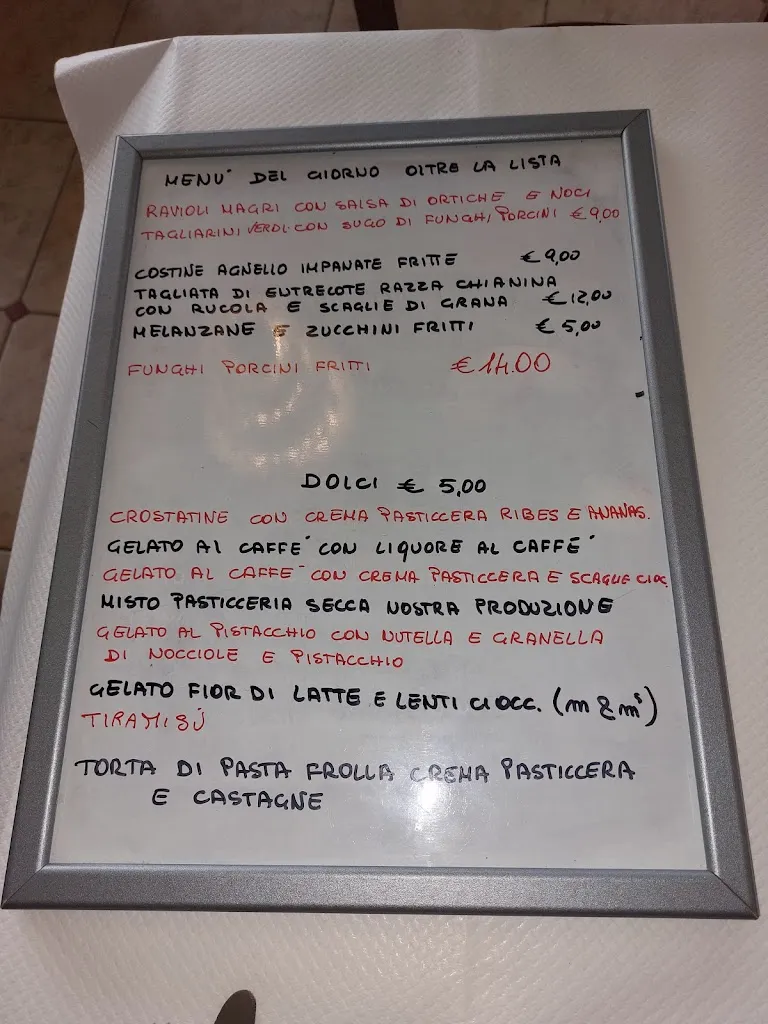 MENU' DEL GIORNO OLTRE LA LISTA
RAVIOLI MAGRI CON SALSA DI ORTICHE E NOCI
TAGLIARINI VERDI CON SUGO DI FUNGHI PORCINI € 9,00
COSTINE AGNELLO IMPANATE FRITTE € 9,00
TAGLIATA DI EUTRECOTE RAZZA CHIANINA
CON RUCOLA E SCAGLIE DI GRANA € 12,00
MELANZANE E ZUCCHINI FRITTI € 5,00
FUNGHI PORCINI FRITTI € 14.00
DOLCI € 5,00
CROSTATINE CON CREMA PASTICCERA RIBES E ANANAS.
GELATO AL CAFFE' CON LIQUORE AL CAFFE'
GELATO AL CAFFE' CON CREMA PASTICCERA E SCAGLIE CIOC.
MISTO PASTICCERIA SECCA NOSTRA PRODUZIONE
GELATO AL PISTACCHIO CON NUTELLA E GRANELLA
DI NOCCIOLE E PISTACCHIO
GELATO FIOR DI LATTE E LENTI CIOCC. (m&m's)
TIRAMISÙ
TORTA DI PASTA FROLLA CREMA PASTICCERA
E CASTAGNE